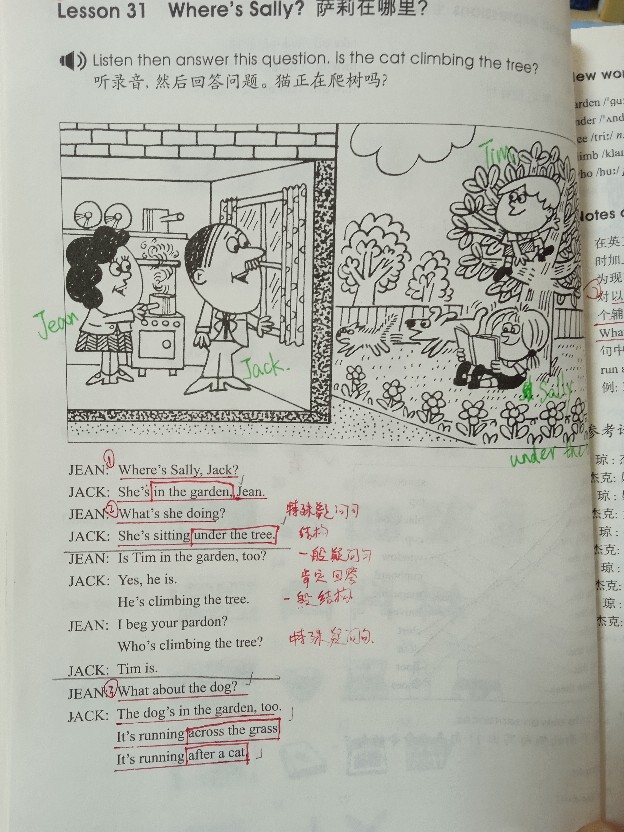 Lesson 31 Where's Sally? 萨莉在哪里?
Listen then answer this question. Is the cat climbing the tree?
听录音, 然后回答问题。猫正在爬树吗?
Tim
Jean
Jack.
Sally
under the
JEAN: ① Where's Sally, Jack?
JACK: She's in the garden, Jean.
JEAN: ② What's she doing? 特殊疑问句
JACK: She's sitting under the tree. 结构
JEAN: Is Tim in the garden, too? 一般疑问句
JACK: Yes, he is. 肯定回答
He's climbing the tree. 一般结构
JEAN: I beg your pardon?
Who's climbing the tree? 特殊疑问句
JACK: Tim is.
JEAN: ③ What about the dog?
JACK: The dog's in the garden, too.
It's running across the grass
It's running after a cat.
在英
时加
为现
对以
个辅
What
句中
run a
例:
参考译
琼:
杰克:
琼:
杰克:
琼:
杰克:
琼:
杰克: